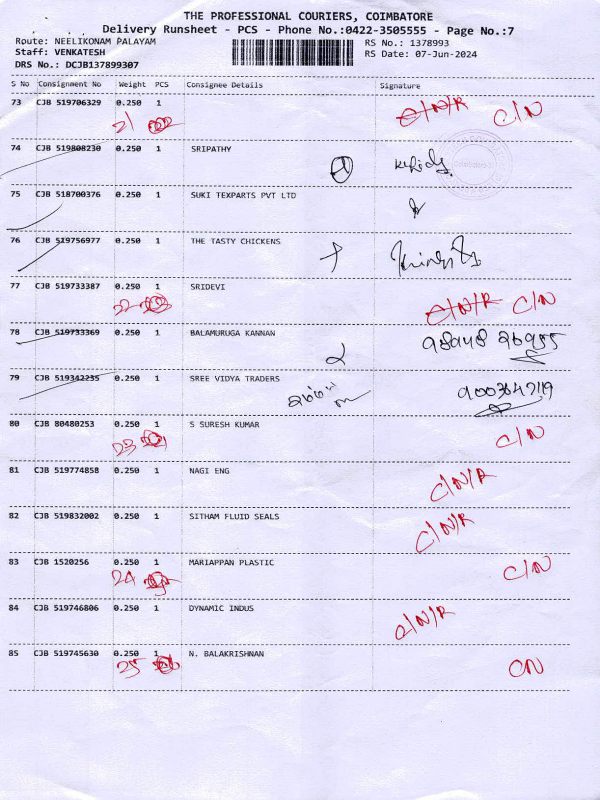 THE PROFESSIONAL COURIERS, COIMBATORE
Delivery Runsheet - PCS - Phone No.:0422-3505555 - Page No.:7
Route: NEELIKONAM PALAYAM
RS No.: 1378993
Staff: VENKATESH
RS Date: 07-Jun-2024
DRS No.: DCJB137899307
S No Consignment No Weight PCS Consignee Details Signature
73 CJB 519706329 0.250 1 C/N/R C/N
21
74 CJB 519808230 0.250 1 SRIPATHY
75 CJB 518700376 0.250 1 SUKI TEXPARTS PVT LTD
76 CJB 519756977 0.250 1 THE TASTY CHICKENS
77 CJB 519733387 0.250 1 SRIDEVI
22 C/N/R C/N
78 CJB 519733369 0.250 1 BALAMURUGA KANNAN
79 CJB 519342235 0.250 1 SREE VIDYA TRADERS
80 CJB 80480253 0.250 1 S SURESH KUMAR
23 C/N
81 CJB 519774858 0.250 1 NAGI ENG
C/N/R
82 CJB 519832002 0.250 1 SITHAM FLUID SEALS
C/N/R
83 CJB 1520256 0.250 1 MARIAPPAN PLASTIC
24 C/N
84 CJB 519746806 0.250 1 DYNAMIC INDUS
C/N/R
85 CJB 519745630 0.250 1 N. BALAKRISHNAN
25 CN